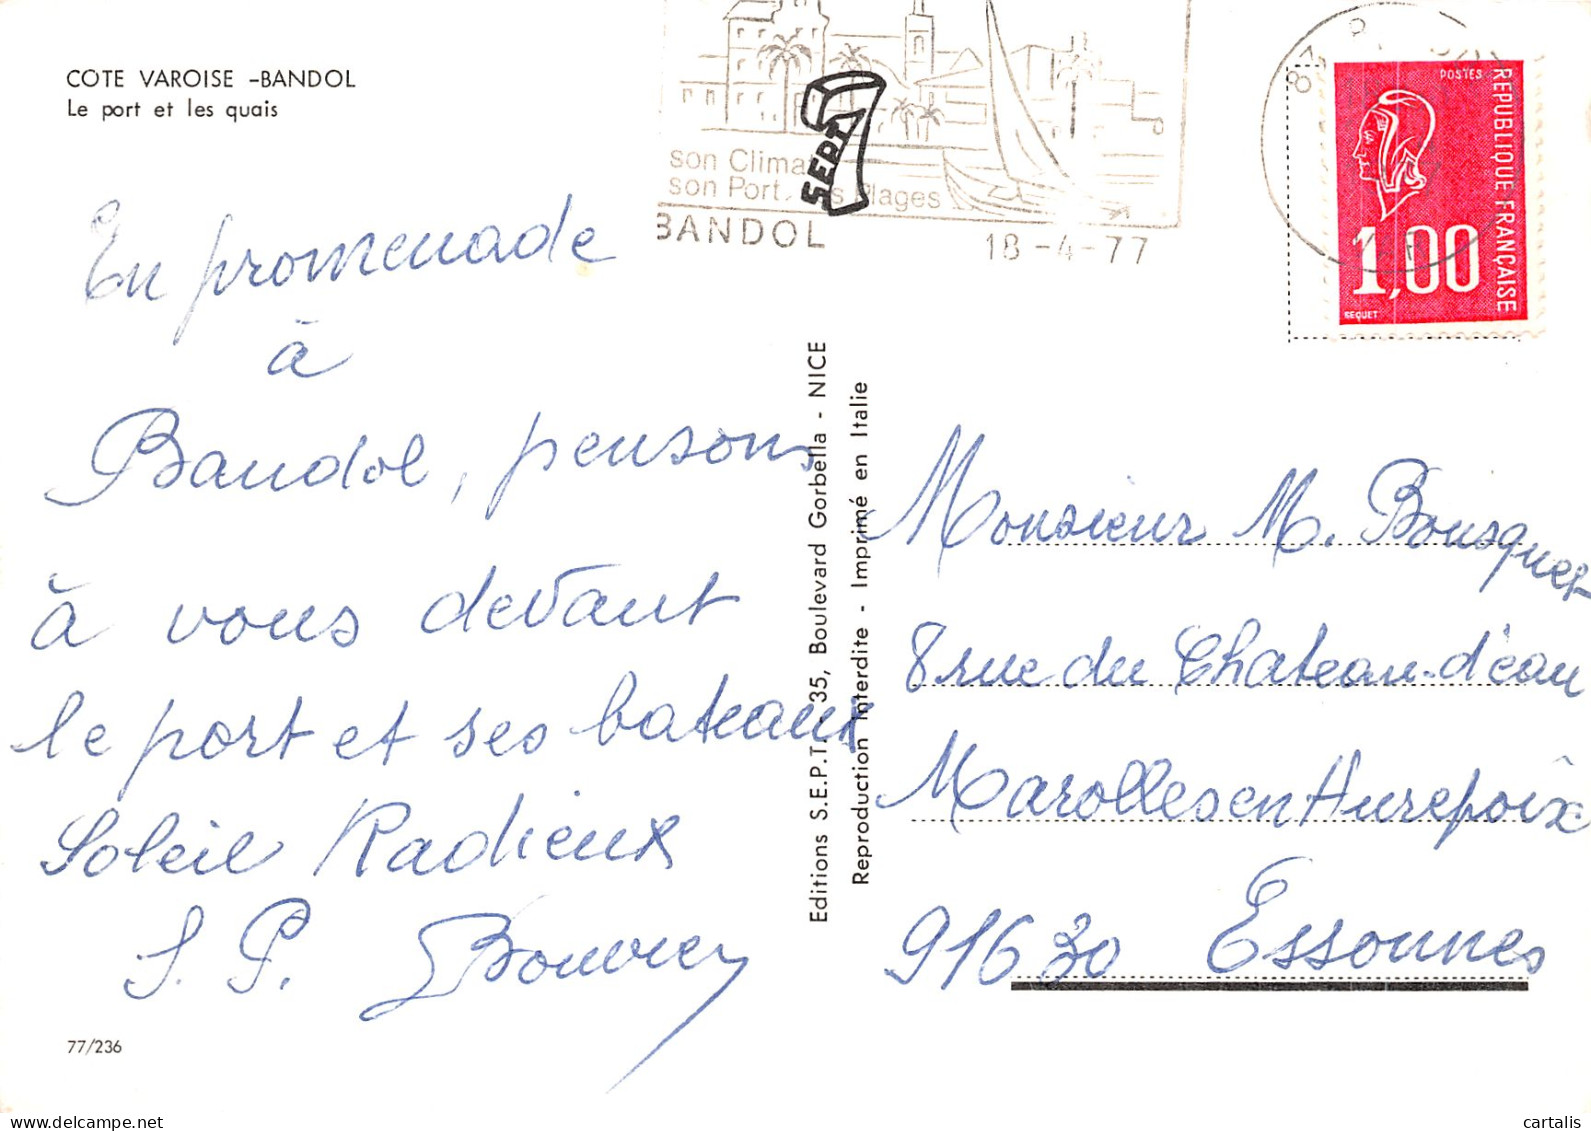 COTE VAROISE -BANDOL
Le port et les quais
son Climat
son Port, ses Plages
BANDOL
18-4-77
SEPT
POSTES
REPUBLIQUE FRANÇAISE
1,00
BEQUET
En promenade
à
Bandol, pensons
à vous devant
le port et ses bateaux
Soleil Radieux
S. P. Bouvier
77/236
Editions S.E.P.T. 35, Boulevard Gorbella - NICE
Reproduction Interdite - Imprimé en Italie
Monsieur M. Bousquet
8 rue du Chateau-d'eau
Marolles en Hurepoix
91630 Essonnes
www.delcampe.net
cartalis